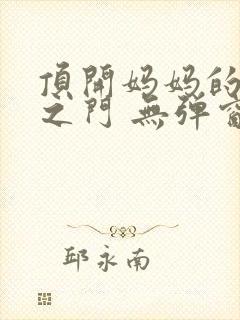 頂開妈妈的
之门 無弹窗
邱永南